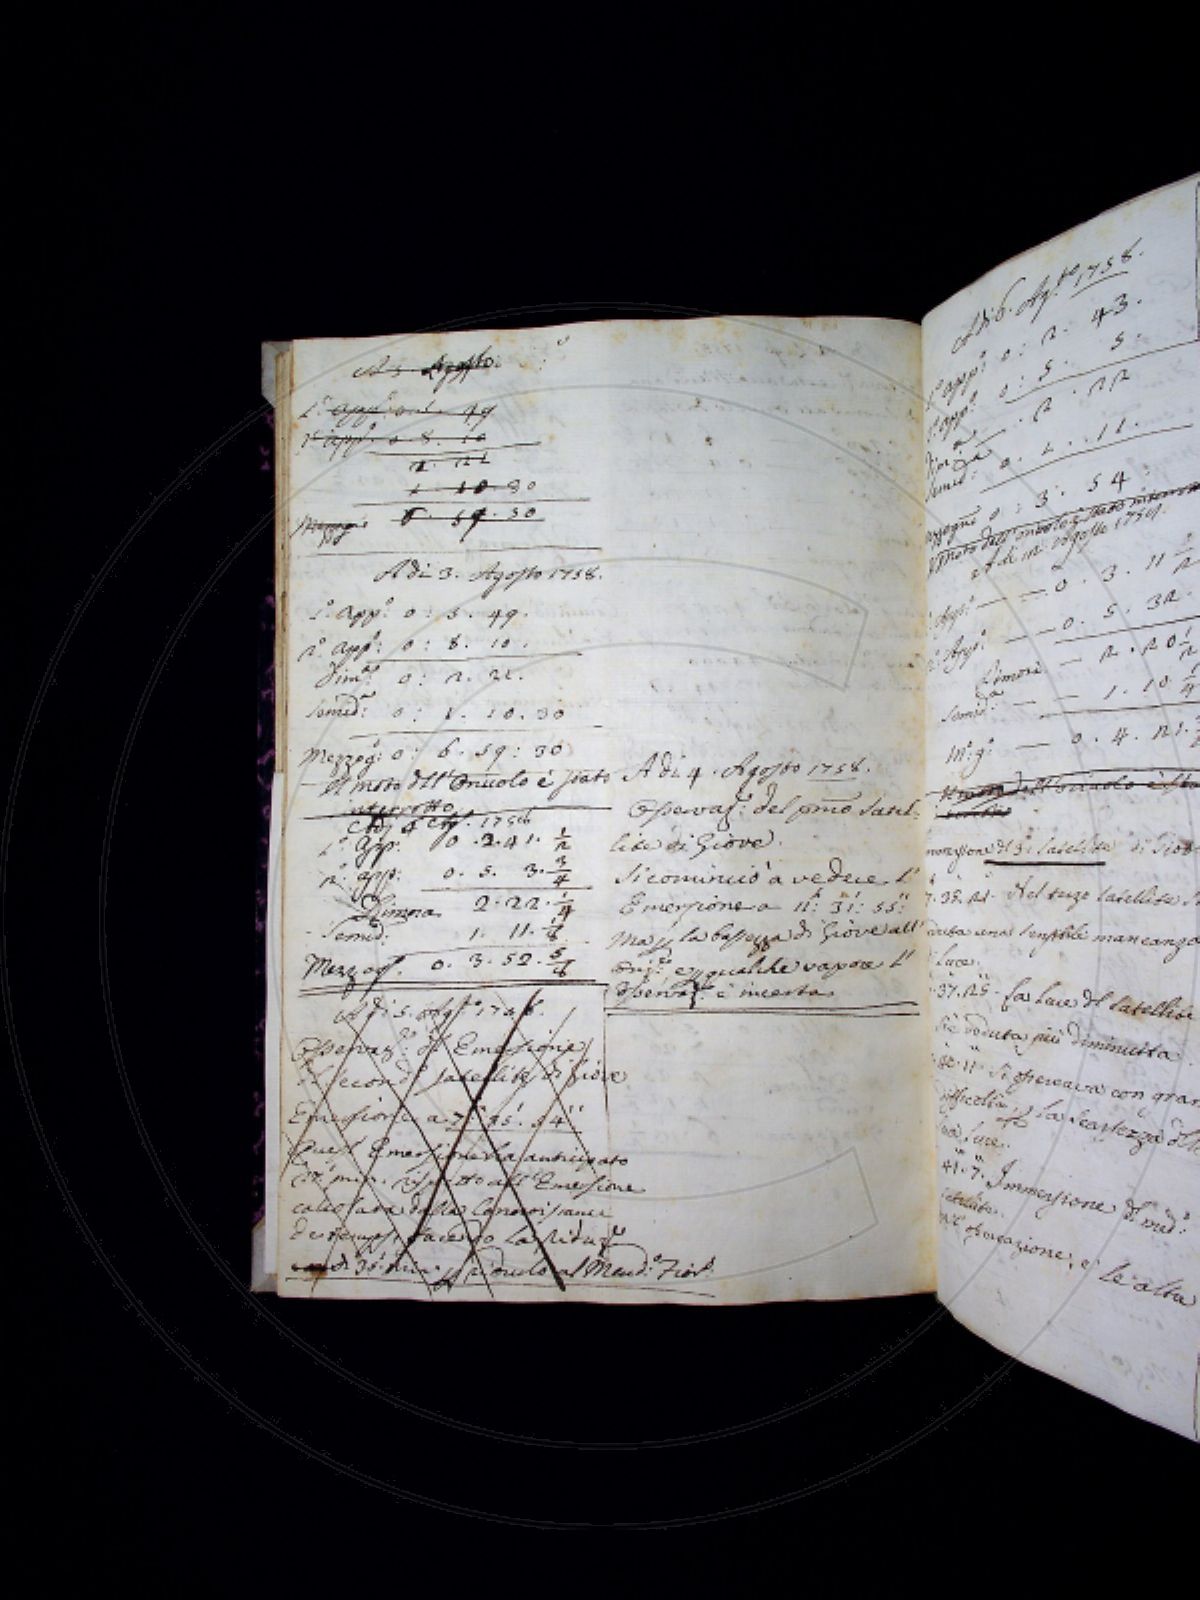 A 3. Agosto.
1.º app.º 0. 5. 49
2.º app.º 0. 8. 10
2. 21
1. 10. 30
6. 59. 30
A di 3. Agosto 1758.
1.º App.º 0 : 5. 49.
2.º App.º : 0 : 8. 10.
0 : 2. 21.
Semid.ª : 0 : 1. 10. 30
Mezzog.º : 0 : 6. 59 : 30
Il moto dell' Oriuolo è stato
interrotto
Adj 4 Ag. 1758
1.º App. 0. 2. 41. 1/2
2.º app. : 0. 5. 3. 3/4
Dimora 2. 22. 1/4
Semid. : 1. 11. 1/8
Mezzog.º. 0. 3. 52. 5/8
A di 5. Ag.to 1758.
Osservaz.e : di Emersione
del second.º satellite di Giove
Emersione a 7. 25. 54
Quest' Emersione ha anticipato
min. rispetto all' Emersione
calcolata dalla Connoissance
des temps, facendo la riduz.e
di 36 min. al Merid.º Fior.º
A di 4. Agosto 1758.
Osservaz.e : del pmo Satel-
lite di Giove.
Si cominciò a vedere l'
Emersione a 11 : 31 : 55 :
Ma p la bassezza di Giove all'
Oriz.e e p qualche vapore l'
Osservaz.e è incerta
A di 6. Ag.to 1758.
1.º app.º : 0 : 2. 43.
2.º app.º 0 : 5. 5.
2. 22
Semid.ª 0. 1. 11.
Mezzogno 0 : 3. 54
Il moto dell' oriuolo è stato interrotto
A di 12. Agosto 1758.
App.º — 0. 3. 11 1/2
2.º App.º — 0. 5. 32.
Dimora — 2. 20 1/2
Semid.ª — 1. 10. 1/4
M.º g.º — 0. 4. 21.
Il moto dell' oriuolo è
Immersione del 3.º Satellite di Giove
38. 21. Nel terzo Satellite
una sensibile mancanza
luce.
37. 25. La luce del Satellite
si è veduta più diminuita
11. Si osservava con gran
difficoltà p la scarsezza della
sua luce.
41. 7. Immersione del med.º
Satellite.
osservazione, e le altre